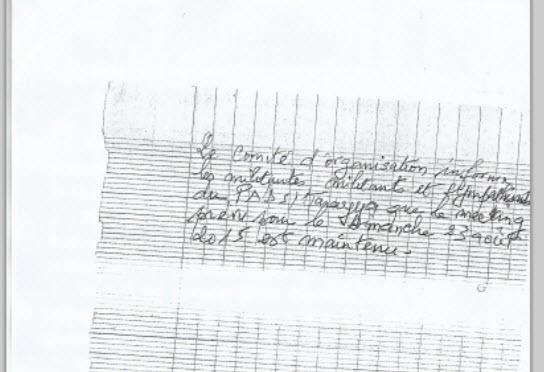 Le Comité d'organisation informe
les militantes militants et sympathisants
du PNDS/Tarayya que le meeting
prévu pour le Dimanche 23 août
2015 est maintenu.